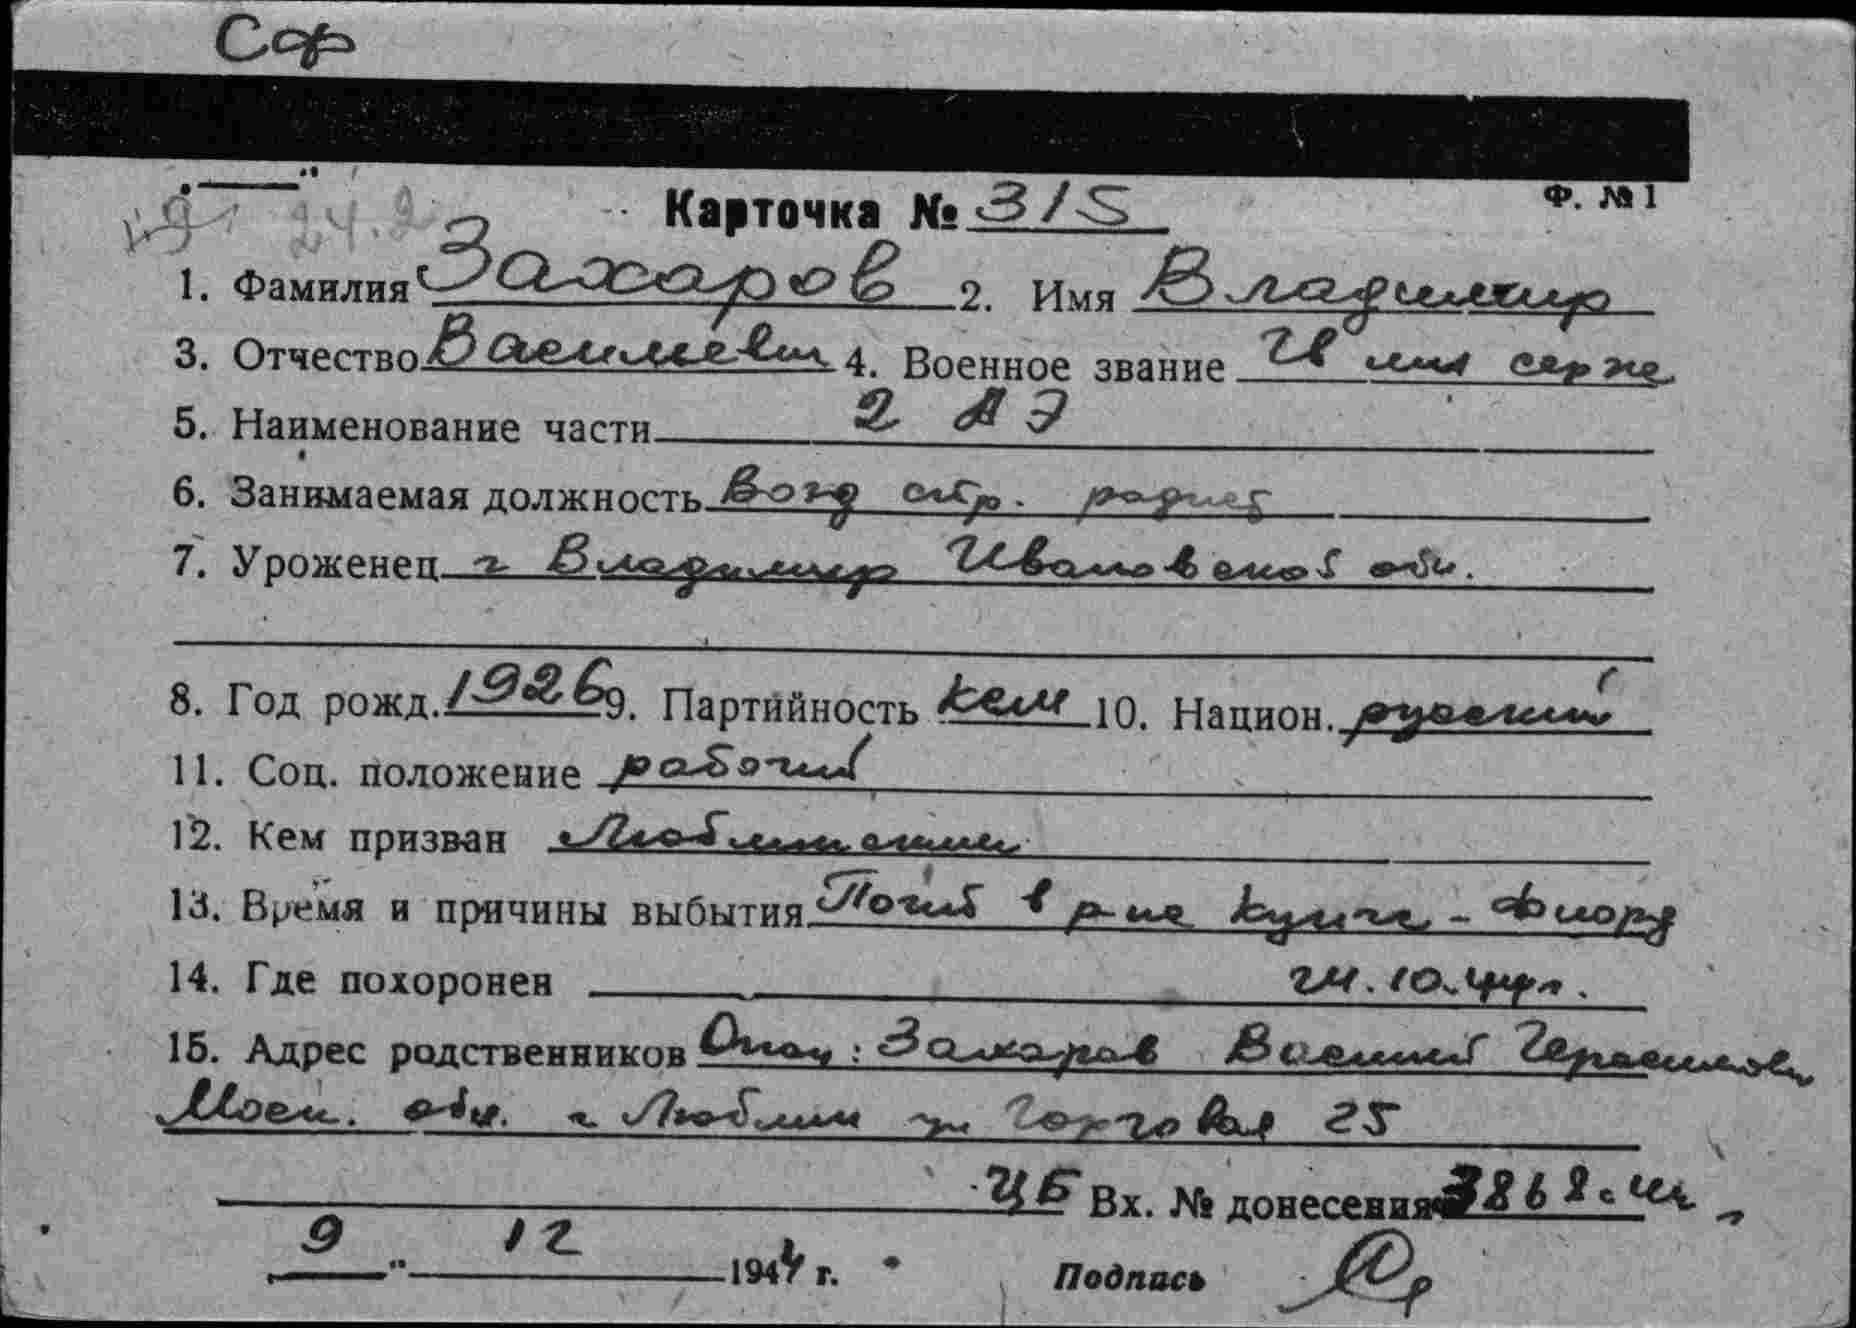 Сф
Ф. № 1
24.2
Карточка № 315
1. Фамилия Захаров 2. Имя Владимир
3. Отчество Васильевич 4. Военное звание Гв мл серж
5. Наименование части 2 АЭ
6. Занимаемая должность Возд стр. радист
7. Уроженец г Владимир Ивановской обл.
8. Год рожд. 1926 9. Партийность 10. Национ. русский
11. Соц. положение рабочий
12. Кем призван Люблинским
13. Время и причины выбытия Погиб в р-не -Фиорд
14. Где похоронен 24.10.44г.
15. Адрес родственников Отец: Захаров Василий Герасимович
Моск. обл. г Люблин ул Торговая 25
ЦБ Вх. № донесения 3868
9 " 12 1944 г. Подпись